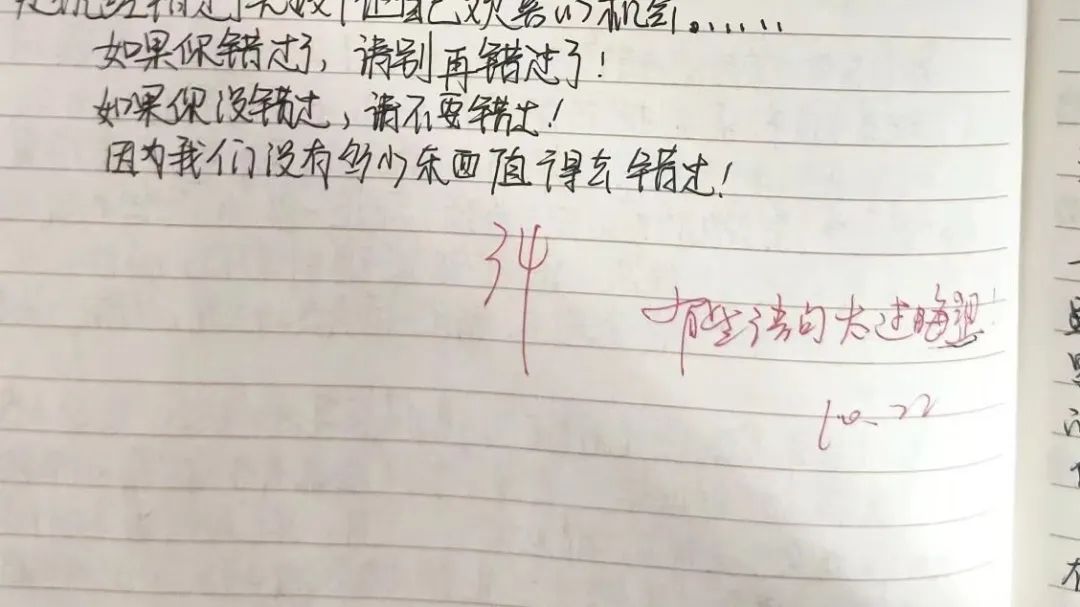 如果你错过了，请别再错过了！
如果你没错过，请不要错过！
因为我们没有多少东西值得去错过！
34
有些语句太过晦涩！
10.22